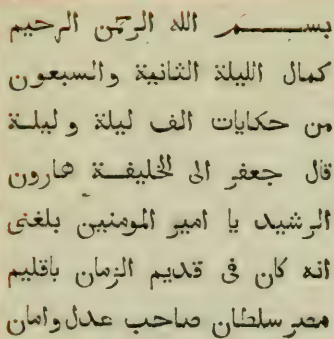 بســـــم الله الرحمن الرحيم
كمال الليلة الثانية والسبعون
من حكايات الف ليلة وليلة
قال جعفر الى الخليفة هارون
الرشيد يا امير المومنين بلغنى
انه كان فى قديم الزمان باقليم
مصر سلطان صاحب عدل وامان